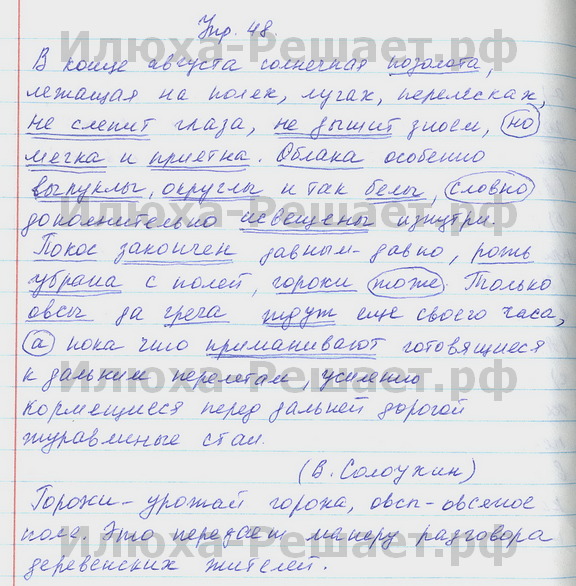 Упр. 48.
В конце августа солнечная позолота,
лежащая на полях, лугах, перелесках,
не слепит глаза, не дышит зноем, но
мягка и приятна. Облака особенно
выпуклы, округлы и так белы, словно
дополнительно освещены изнутри.
Покос закончен давным-давно, рожь
убрана с полей, горохи тоже. Только
овсы да греча ждут еще своего часа,
а пока что приманивают готовящиеся
к дальним перелетам, усиленно
кормящиеся перед дальней дорогой
журавлиные стаи.
(В. Солоухин)
Горохи - урожай гороха, овсы - овсяное
поле. Это передает манеру разговора
деревенских жителей.
Илюха-Решает.рф
Илюха-Решает.рф
Илюха-Решает.рф
Илюха-Решает.рф
Илюха-Решает.рф